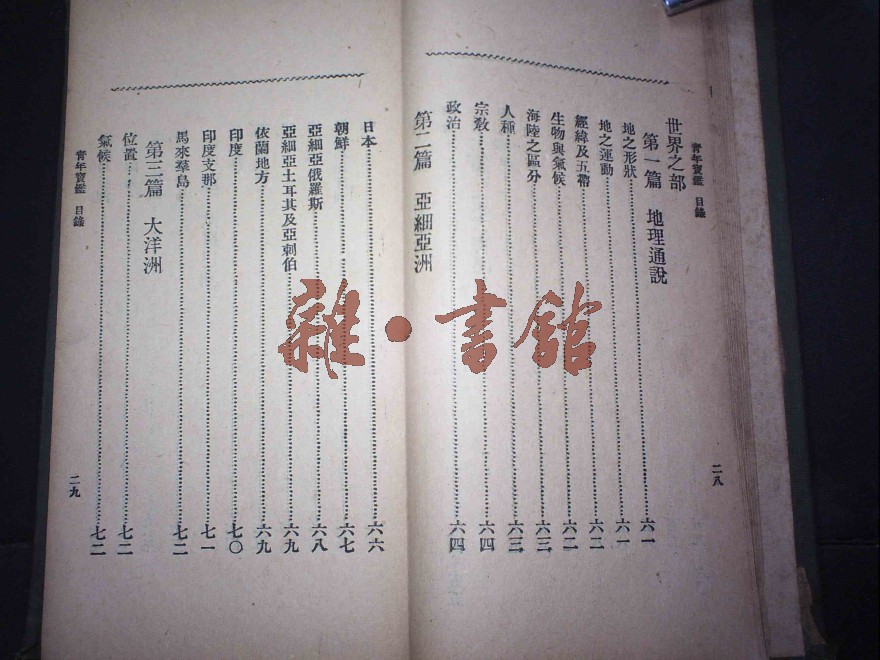 青年寶鑑 目錄
世界之部
第一篇 地理通說
地之形狀……六一
地之運動……六一
經緯及五帶……六二
生物與氣候……六二
海陸之區分……六三
人種……六三
宗教……六四
政治……六四
第二篇 亞細亞洲
二八
日本……六六
朝鮮……六七
亞細亞俄羅斯……六八
亞細亞土耳其及亞剌伯……六九
依蘭地方……六九
印度……七〇
印度支那……七一
馬來羣島……七二
第三篇 大洋洲
位置……七二
氣候……七二
青年寶鑑 目錄
二九
雜·書館